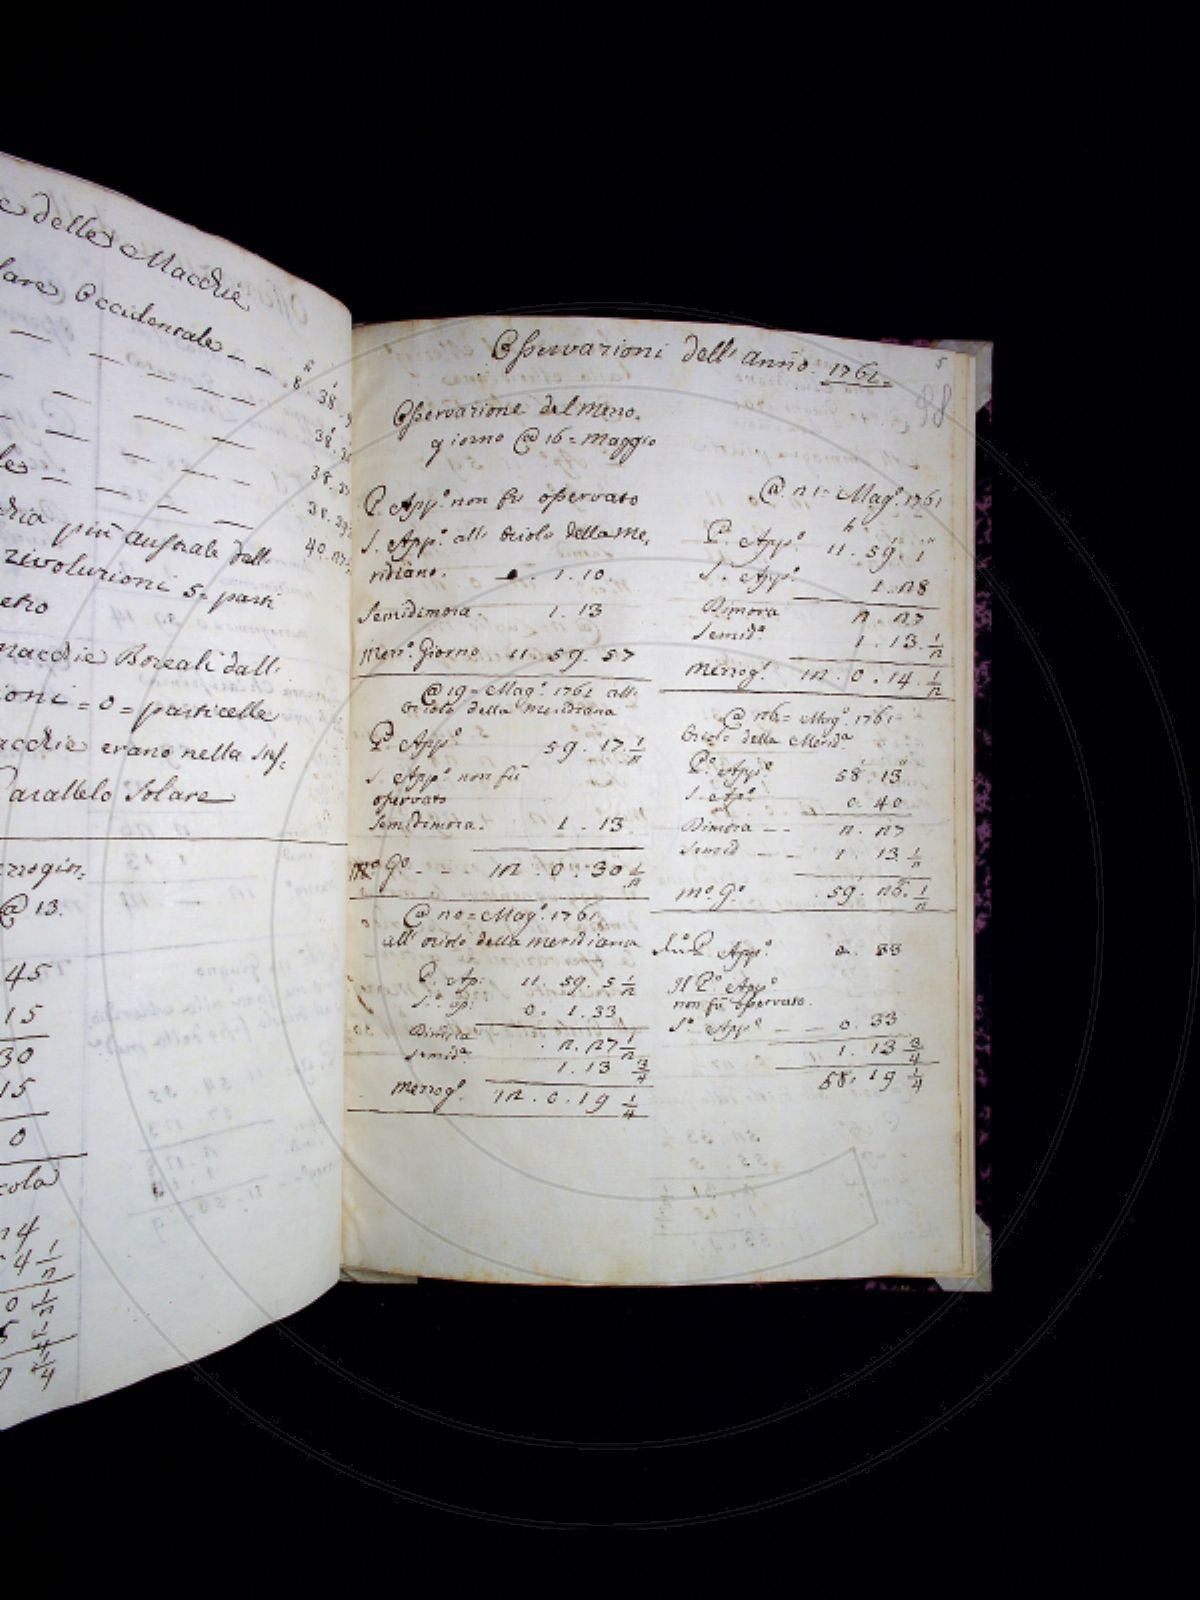 e delle Macchie
lare Occidentale — — 8. 38. 9
— — — — — 38. 3
— — — — 38. 3
le — — — 38. 39
40. 27
chia più australe dell.
rivoluzioni 5= parti
etro
macchie Boreali dall.
ioni = 0 = particelle
acchie erano nella sud.
Parallelo Solare
ezzogior.
@ 13.
45
15
30
15
0
cola
24
4 1/2
0 1/2
5 1/4
1/4
Osservazioni dell' anno. 1761.=
5
88
Osservazione del mezo.
giorno @ 16 = Maggio
P. App.º non fu osservato
S. App.º all. oriolo della me,
ridiana. . 1. 10
Semidimora. 1. 13
mezz.º Giorno 11. 59. 57
@ 19 = Mag.º 1761 all.
oriolo della meridiana
P. App.º 59. 17. 1/2
S. App.º non fù
osservato
Semidimora. 1. 13
M.º G.º - - 12. 0. 30 1/2
@ 20 = Mag.º 1761
all' oriolo della meridiana
P. Ap. 11. 59. 5 1/2
S.º ap. 0. 1. 33
Dimora . 2. 27 1/2
semid.ª 1. 13 3/4
mezzog.º 12. 0. 19 1/4
@ 21 = Mag.º 1761
P. App.º 11. 59. 1
S. App.º 1. 28
Dimora 2. 27
Semid.ª 1. 13. 1/2
Mezzog.º 12. 0. 14. 1/2
@ 26 = Mag.º 1761 =
Oriolo della Merid.ª
P.º App.º 58. 13
S. Ap.º 0. 40
Dimora — - 2. 27
Semid — - 1. 13 1/2
M.º G.º . 59. 26. 1/2
App.º 33
Il P.º App.º
non fù osservato.
S.º App.º — - 0. 33
1. 13 3/4
58. 19 1/4